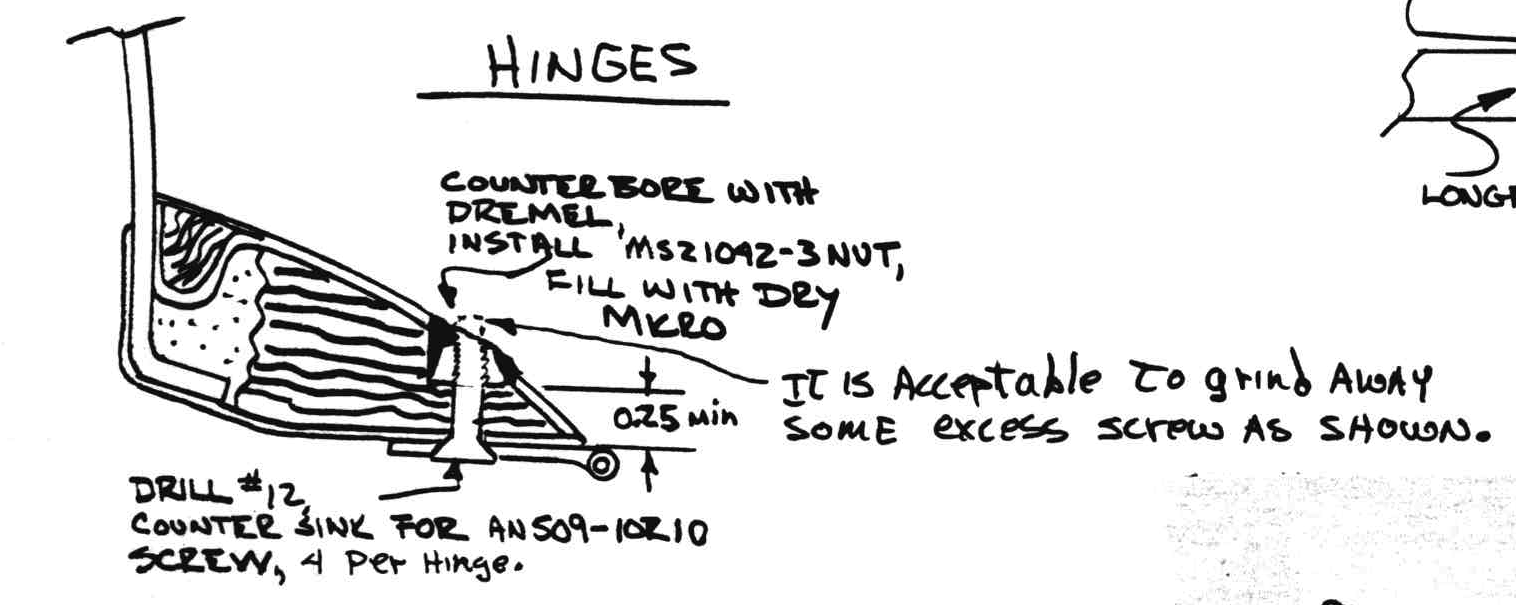 HINGES
COUNTERBORE WITH
DREMEL,
INSTALL MS21042-3 NUT,
FILL WITH DRY
MICRO
IT IS Acceptable TO grind AWAY
SOME excess screw AS SHOWN.
0.25 min
DRILL #12,
COUNTERSINK FOR AN509-10R10
SCREW, 4 Per Hinge.